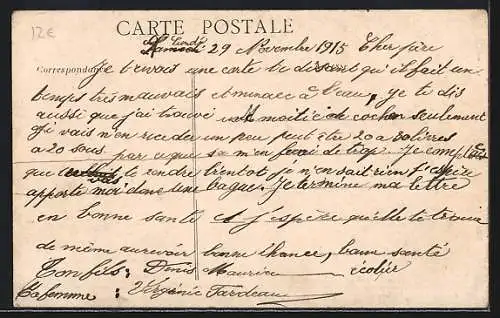 12€
CARTE POSTALE
Lundi
Samedi 29 Novembre 1915 Cher père
Correspondance
Je tenvois une carte te disent qu'il fait un
temps tres mauvais et menace à l'eau, je te dis
aussi que j'ai trouvé moitié de cochon seulement
je vais n'en ricder un peu peut être 20 a 30 livres
a 20 sous par ce que sa m'en ferai de trop. Je compte
que vas te rendre bientot je n'en sait rien j'espère
apporte moi donc une bague. Je termine ma lettre
en bonne santé et j'espère qu'elle te trouve
de même au revoir bonne chance, bonne santé
Ton fils : Denis Maurice écolier
Ta femme : Virginie Tardeau